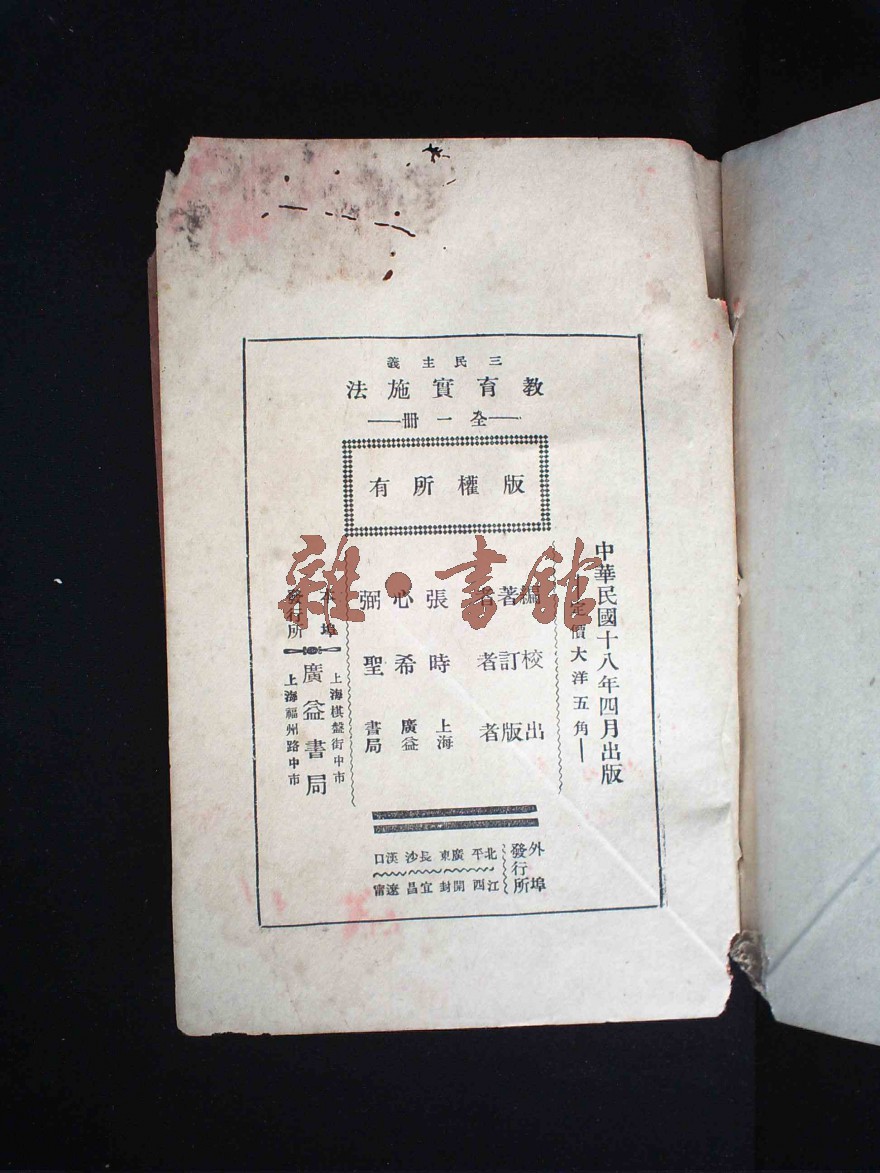 三民主義
教育實施法
全一冊
版權所有
中華民國十八年四月出版
定價大洋五角
編著者 張心弼
校訂者 時希聖
出版者 上海廣益書局
本埠發行所
上海棋盤街中市
廣益書局
上海福州路中市
外埠發行所
北平 廣東 長沙 漢口
江西 開封 宜昌 遼甯
雜·書館